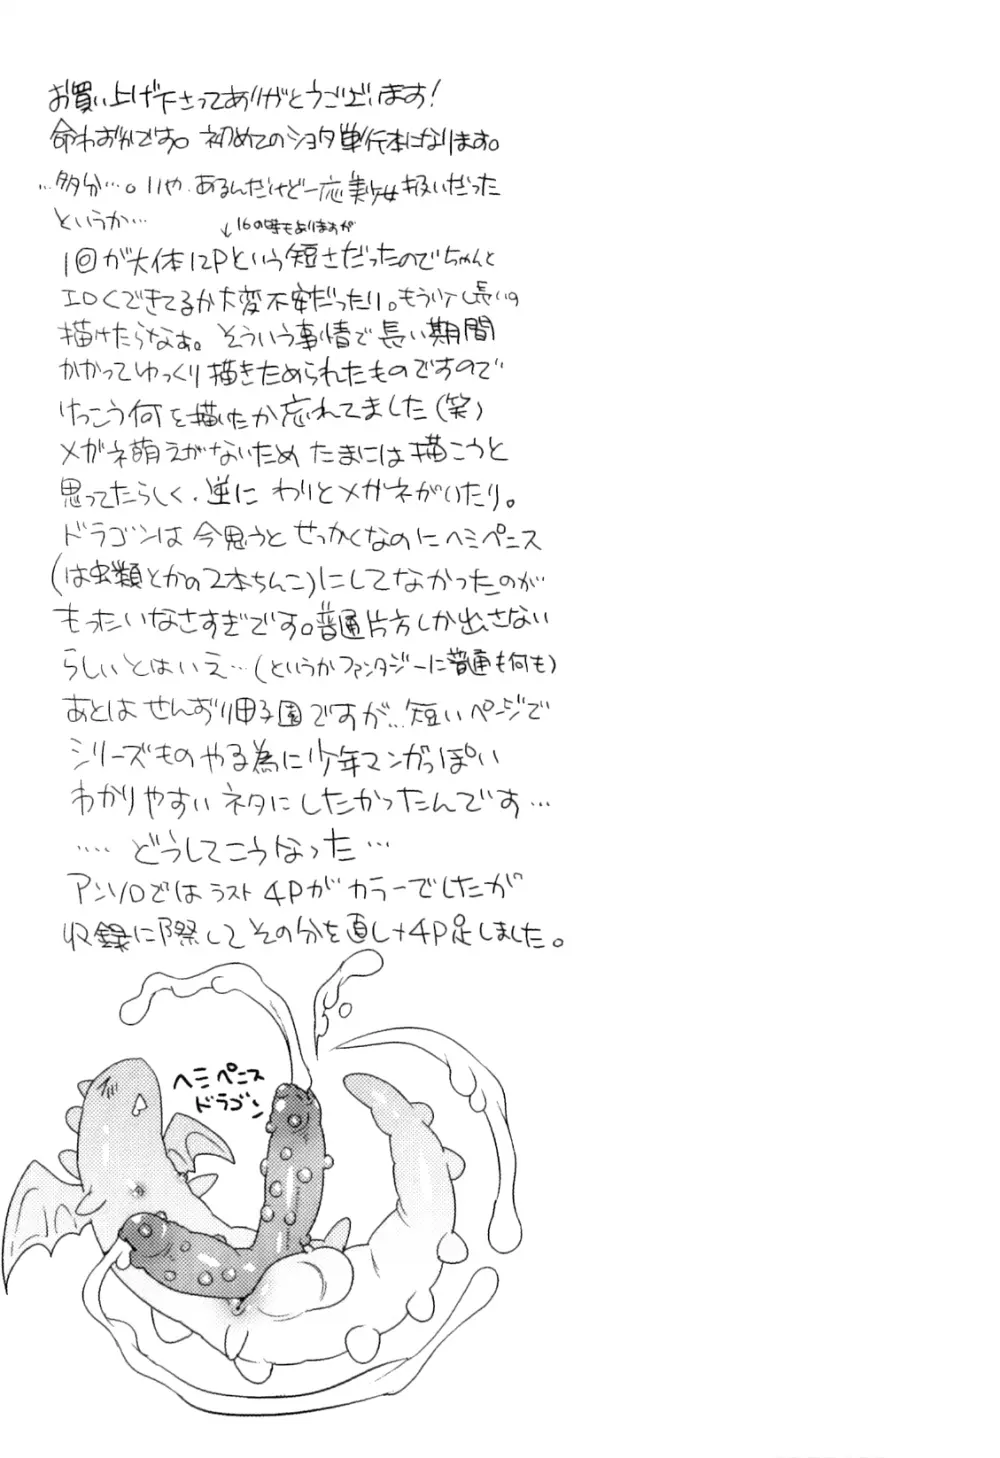 お買い上げ下さってありがとうございます!
命わずかです。初めてのショタ単行本になります。
…多分…。いや、あるんだけど一応美少女扱いだった
というか…
↓16の時もありますが
1回が大体12Pという短さだったのでちゃんと
エロくできてるか大変不安だったり。もう少し長いの
描けたらなぁ。そういう事情で長い期間
かかってゆっくり描きためられたものですので
けっこう何を描いたか忘れてました(笑)
メガネ萌えがないため たまには描こうと
思ってたらしく、逆に わりとメガネがいたり。
ドラゴンは今思うと せっかくなのにヘミペニス
(は虫類とかの2本ちんこ)にしてなかったのが
もったいなさすぎです。普通片方しか出さない
らしいとはいえ…(というかファンタジーに普通も何も)
あとは せんずり甲子園ですが…短いページで
シリーズものやる為に少年マンガっぽい
わかりやすいネタにしたかったんです…
…… どうしてこうなった…
アンソロではラスト4Pがカラーでしたが
収録に際して その分を直し+4P足しました。
ヘミペニス
ドラゴン